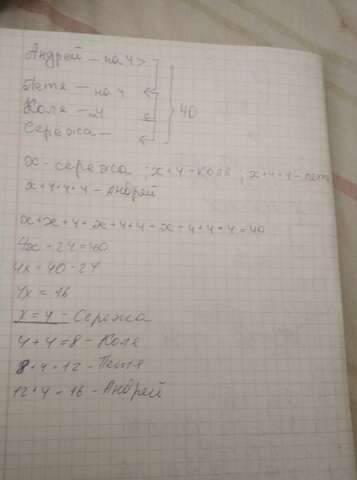 Андрей – на 4 >
Петя – на 4
Коля – 4
Сережа –
40
x – сережа ; x+4 – коля ; x+4+4 – петя
x+4+4+4 – Андрей
x+x+4+x+4+4+x+4+4+4=40
4x – 24 = 40
4x = 40 – 24
4x = 16
x = 4 – Сережа
4+4=8 – Коля
8+4=12 – Петя
12+4=16 – Андрей